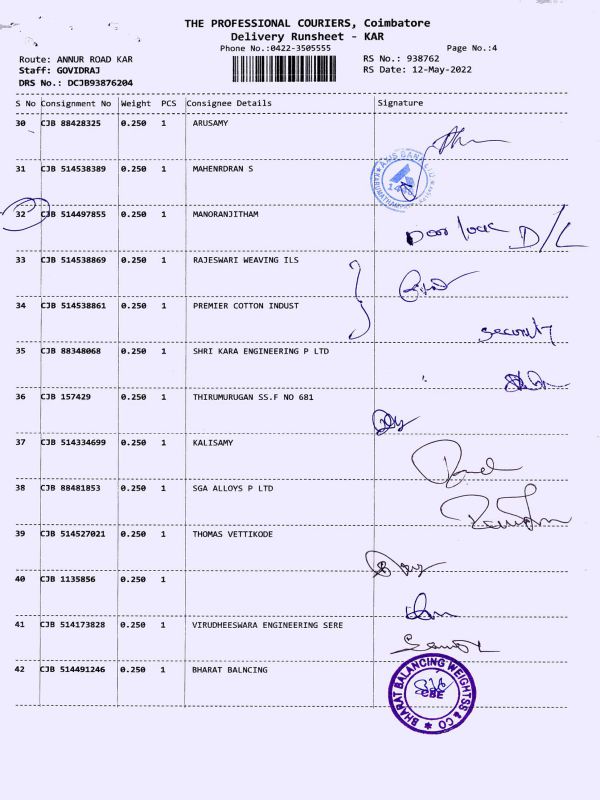 THE PROFESSIONAL COURIERS, Coimbatore
Delivery Runsheet - KAR
Phone No.:0422-3505555
Page No.:4
Route: ANNUR ROAD KAR
RS No.: 938762
Staff: GOVIDRAJ
RS Date: 12-May-2022
DRS No.: DCJB93876204
S No Consignment No Weight PCS Consignee Details Signature
30 CJB 88428325 0.250 1 ARUSAMY
31 CJB 514538389 0.250 1 MAHENRDRAN S
AXIS BANK LTD
32 CJB 514497855 0.250 1 MANORANJITHAM
Door lock D/L
33 CJB 514538869 0.250 1 RAJESWARI WEAVING ILS
34 CJB 514538861 0.250 1 PREMIER COTTON INDUST
security
35 CJB 88348068 0.250 1 SHRI KARA ENGINEERING P LTD
36 CJB 157429 0.250 1 THIRUMURUGAN SS.F NO 681
37 CJB 514334699 0.250 1 KALISAMY
38 CJB 88481853 0.250 1 SGA ALLOYS P LTD
39 CJB 514527021 0.250 1 THOMAS VETTIKODE
40 CJB 1135856 0.250 1
41 CJB 514173828 0.250 1 VIRUDHEESWARA ENGINEERING SERE
42 CJB 514491246 0.250 1 BHARAT BALNCING
BHARAT BALANCING WEIGHTSS & CO
CBE